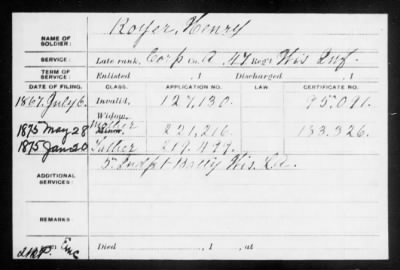 Royer, Henry
NAME OF SOLDIER:
SERVICE: Late rank, Corp Co. A, 47 Reg't Wis Inf.
TERM OF SERVICE: Enlisted , 1 Discharged , 1
DATE OF FILING. CLASS. APPLICATION NO. LAW CERTIFICATE NO.
1867. July 6. Invalid, 127,130. 95.091.
Widow,
1875 May 28 Mother Minor, 221,216. 183.326.
1875 Jan 20 Father 219.
5" Indp't Batt'y Wis. L.A.
ADDITIONAL SERVICES:
REMARKS:
Died , 1 , at